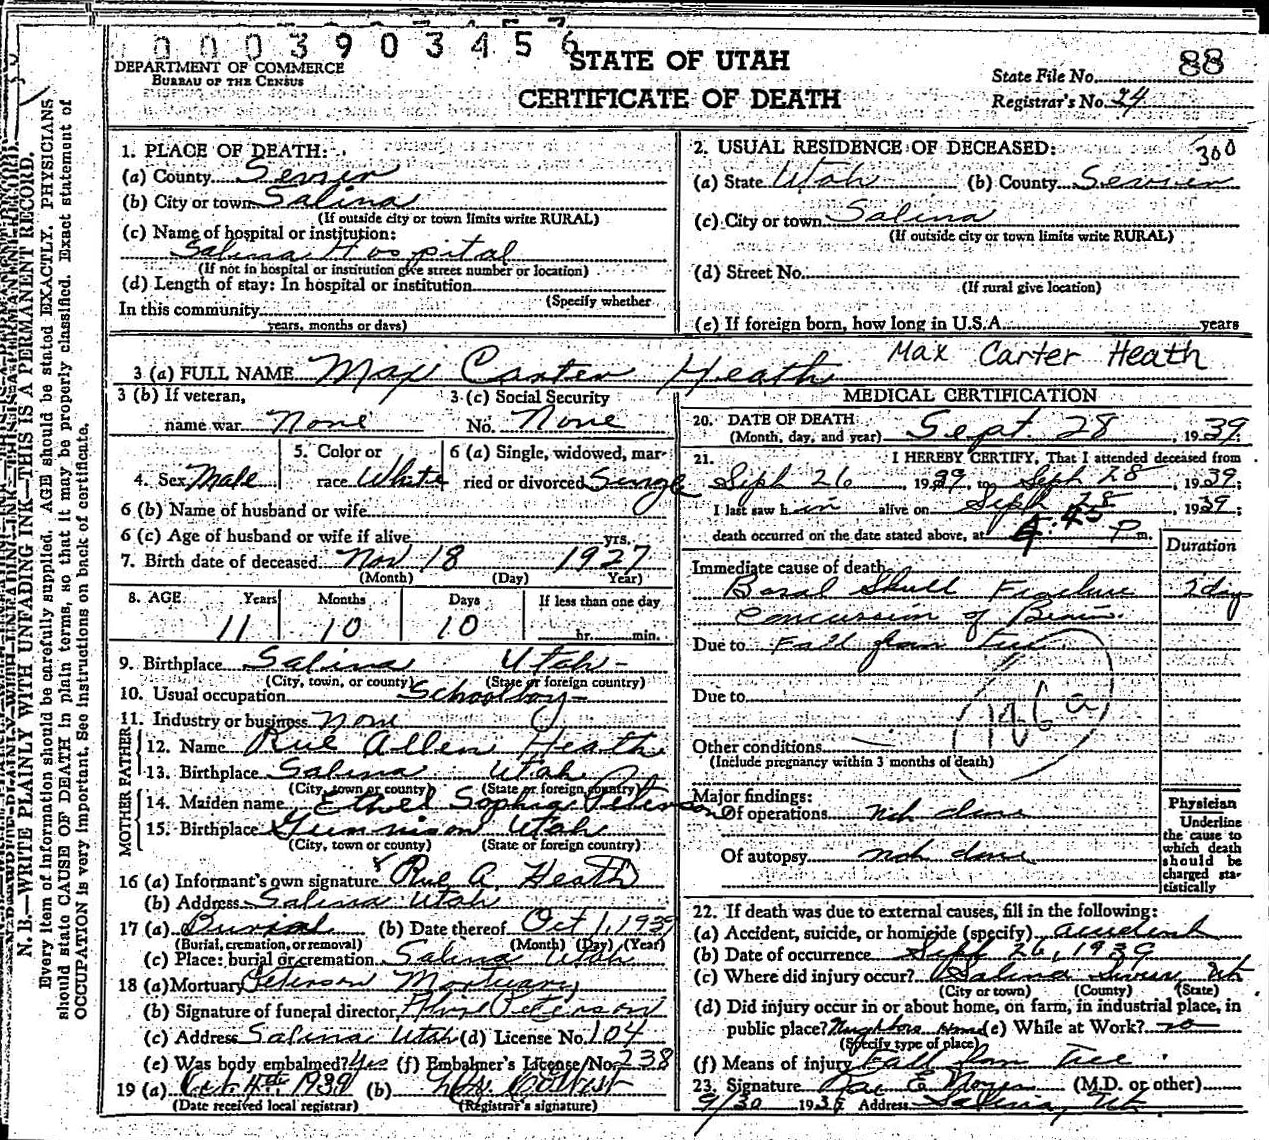 0000 3903456
STATE OF UTAH
CERTIFICATE OF DEATH
DEPARTMENT OF COMMERCE
BUREAU OF THE CENSUS
State File No. 88
Registrar's No. 24
N. B.—WRITE PLAINLY WITH UNFADING INK—THIS IS A PERMANENT RECORD.
Every item of information should be carefully supplied. AGE should be stated EXACTLY. PHYSICIANS
should state CAUSE OF DEATH in plain terms, so that it may be properly classified. Exact statement of
OCCUPATION is very important. See instructions on back of certificate.
1. PLACE OF DEATH:
(a) County Sevier
(b) City or town Salina
(If outside city or town limits write RURAL)
(c) Name of hospital or institution:
Salina Hospital
(If not in hospital or institution give street number or location)
(d) Length of stay: In hospital or institution
(Specify whether
In this community
years, months or days)
2. USUAL RESIDENCE OF DECEASED:
300
(a) State Utah (b) County Sevier
(c) City or town Salina
(If outside city or town limits write RURAL)
(d) Street No.
(If rural give location)
(e) If foreign born, how long in U.S.A. years
3 (a) FULL NAME Max Carter Heath
Max Carter Heath
3 (b) If veteran,
name war None
3 (c) Social Security
No. None
4. Sex Male
5. Color or
race White
6 (a) Single, widowed, mar-
ried or divorced Single
6 (b) Name of husband or wife
6 (c) Age of husband or wife if alive yrs.
7. Birth date of deceased Nov 18 1927
(Month) (Day) Year)
8. AGE Years Months Days If less than one day
11 10 10 hr. min.
9. Birthplace Salina Utah
(City, town, or county) (State or foreign country)
10. Usual occupation Schoolboy
11. Industry or business None
FATHER
12. Name Rue Allen Heath
13. Birthplace Salina Utah
(City, town or county) (State or foreign country)
MOTHER
14. Maiden name Ethel Sophia Peterson
15. Birthplace Gunnison Utah
(City, town or county) (State or foreign country)
16 (a) Informant's own signature Rue A. Heath
(b) Address Salina Utah
17 (a) Burial (b) Date thereof Oct 1, 1939
(Burial, cremation, or removal) (Month) (Day) (Year)
(c) Place: burial or cremation Salina Utah
18 (a) Mortuary Peterson Mortuary
(b) Signature of funeral director Peterson
(c) Address Salina Utah (d) License No. 104
(e) Was body embalmed? Yes (f) Embalmer's License No. 238
19 (a) Oct. 4th 1939 (b)
(Date received local registrar) (Registrar's signature)
MEDICAL CERTIFICATION
20. DATE OF DEATH
(Month, day, and year) Sept. 28, 1939;
21. I HEREBY CERTIFY, That I attended deceased from
Sept 26, 1939, to Sept 28, 1939;
I last saw him alive on Sept 28, 1939;
death occurred on the date stated above, at 4:45 P m.
Duration
Immediate cause of death
Basal Skull Fracture 2 days
Concussion of Brain.
Due to Fall from Tree
Due to
186 a
Other conditions
(Include pregnancy within 3 months of death)
Major findings:
Of operations not done
Of autopsy not done
Physician
Underline
the cause to
which death
should be
charged sta-
tistically
22. If death was due to external causes, fill in the following:
(a) Accident, suicide, or homicide (specify) accident
(b) Date of occurrence Sept 26, 1939
(c) Where did injury occur? Salina Sevier Ut
(City or town) (County) (State)
(d) Did injury occur in or about home, on farm, in industrial place, in
public place? Neighbors Home (e) While at Work? no
(Specify type of place)
(f) Means of injury Fall from Tree
23. Signature Rae E Noyes (M.D. or other)
9/30 1939 Address Salina, Ut.